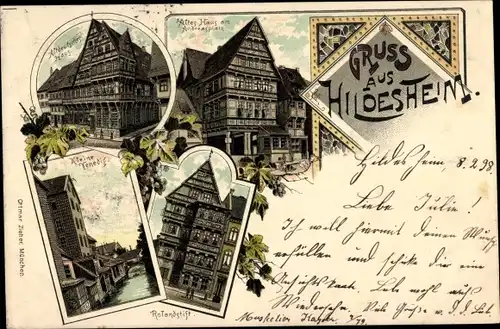 Altdeutsches Haus.
Altes Haus am Andreasplatz
GRUSS
AUS
HILDESHEIM.
Kleine Venedig
Rolandstift
Ottmar Zieher, München.
Hildesheim, 8.2.98
Liebe Julie!
Ich will hiermit deinen Wunsch
erfüllen und schicke dir eine
Ansichtskarte. Lebe wohl auf
Wiedersehn. Viele Grüße v. D. L.
Musketier